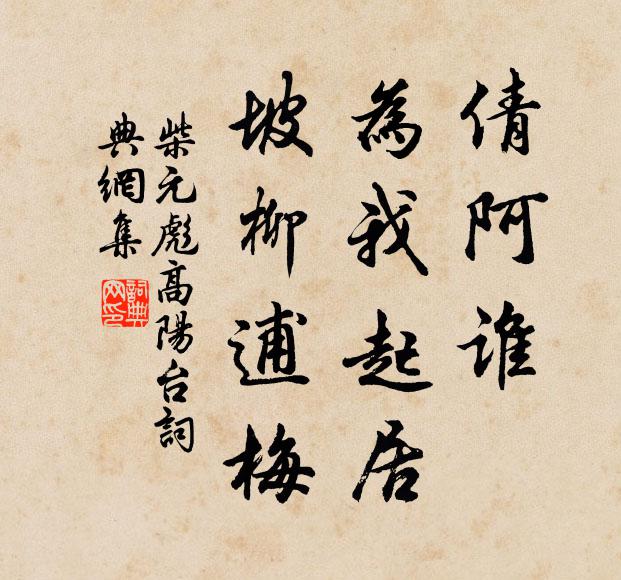 倩阿谁
為我起居
坡柳逋梅
柴元彪高陽台詞
典網集
詞典网印